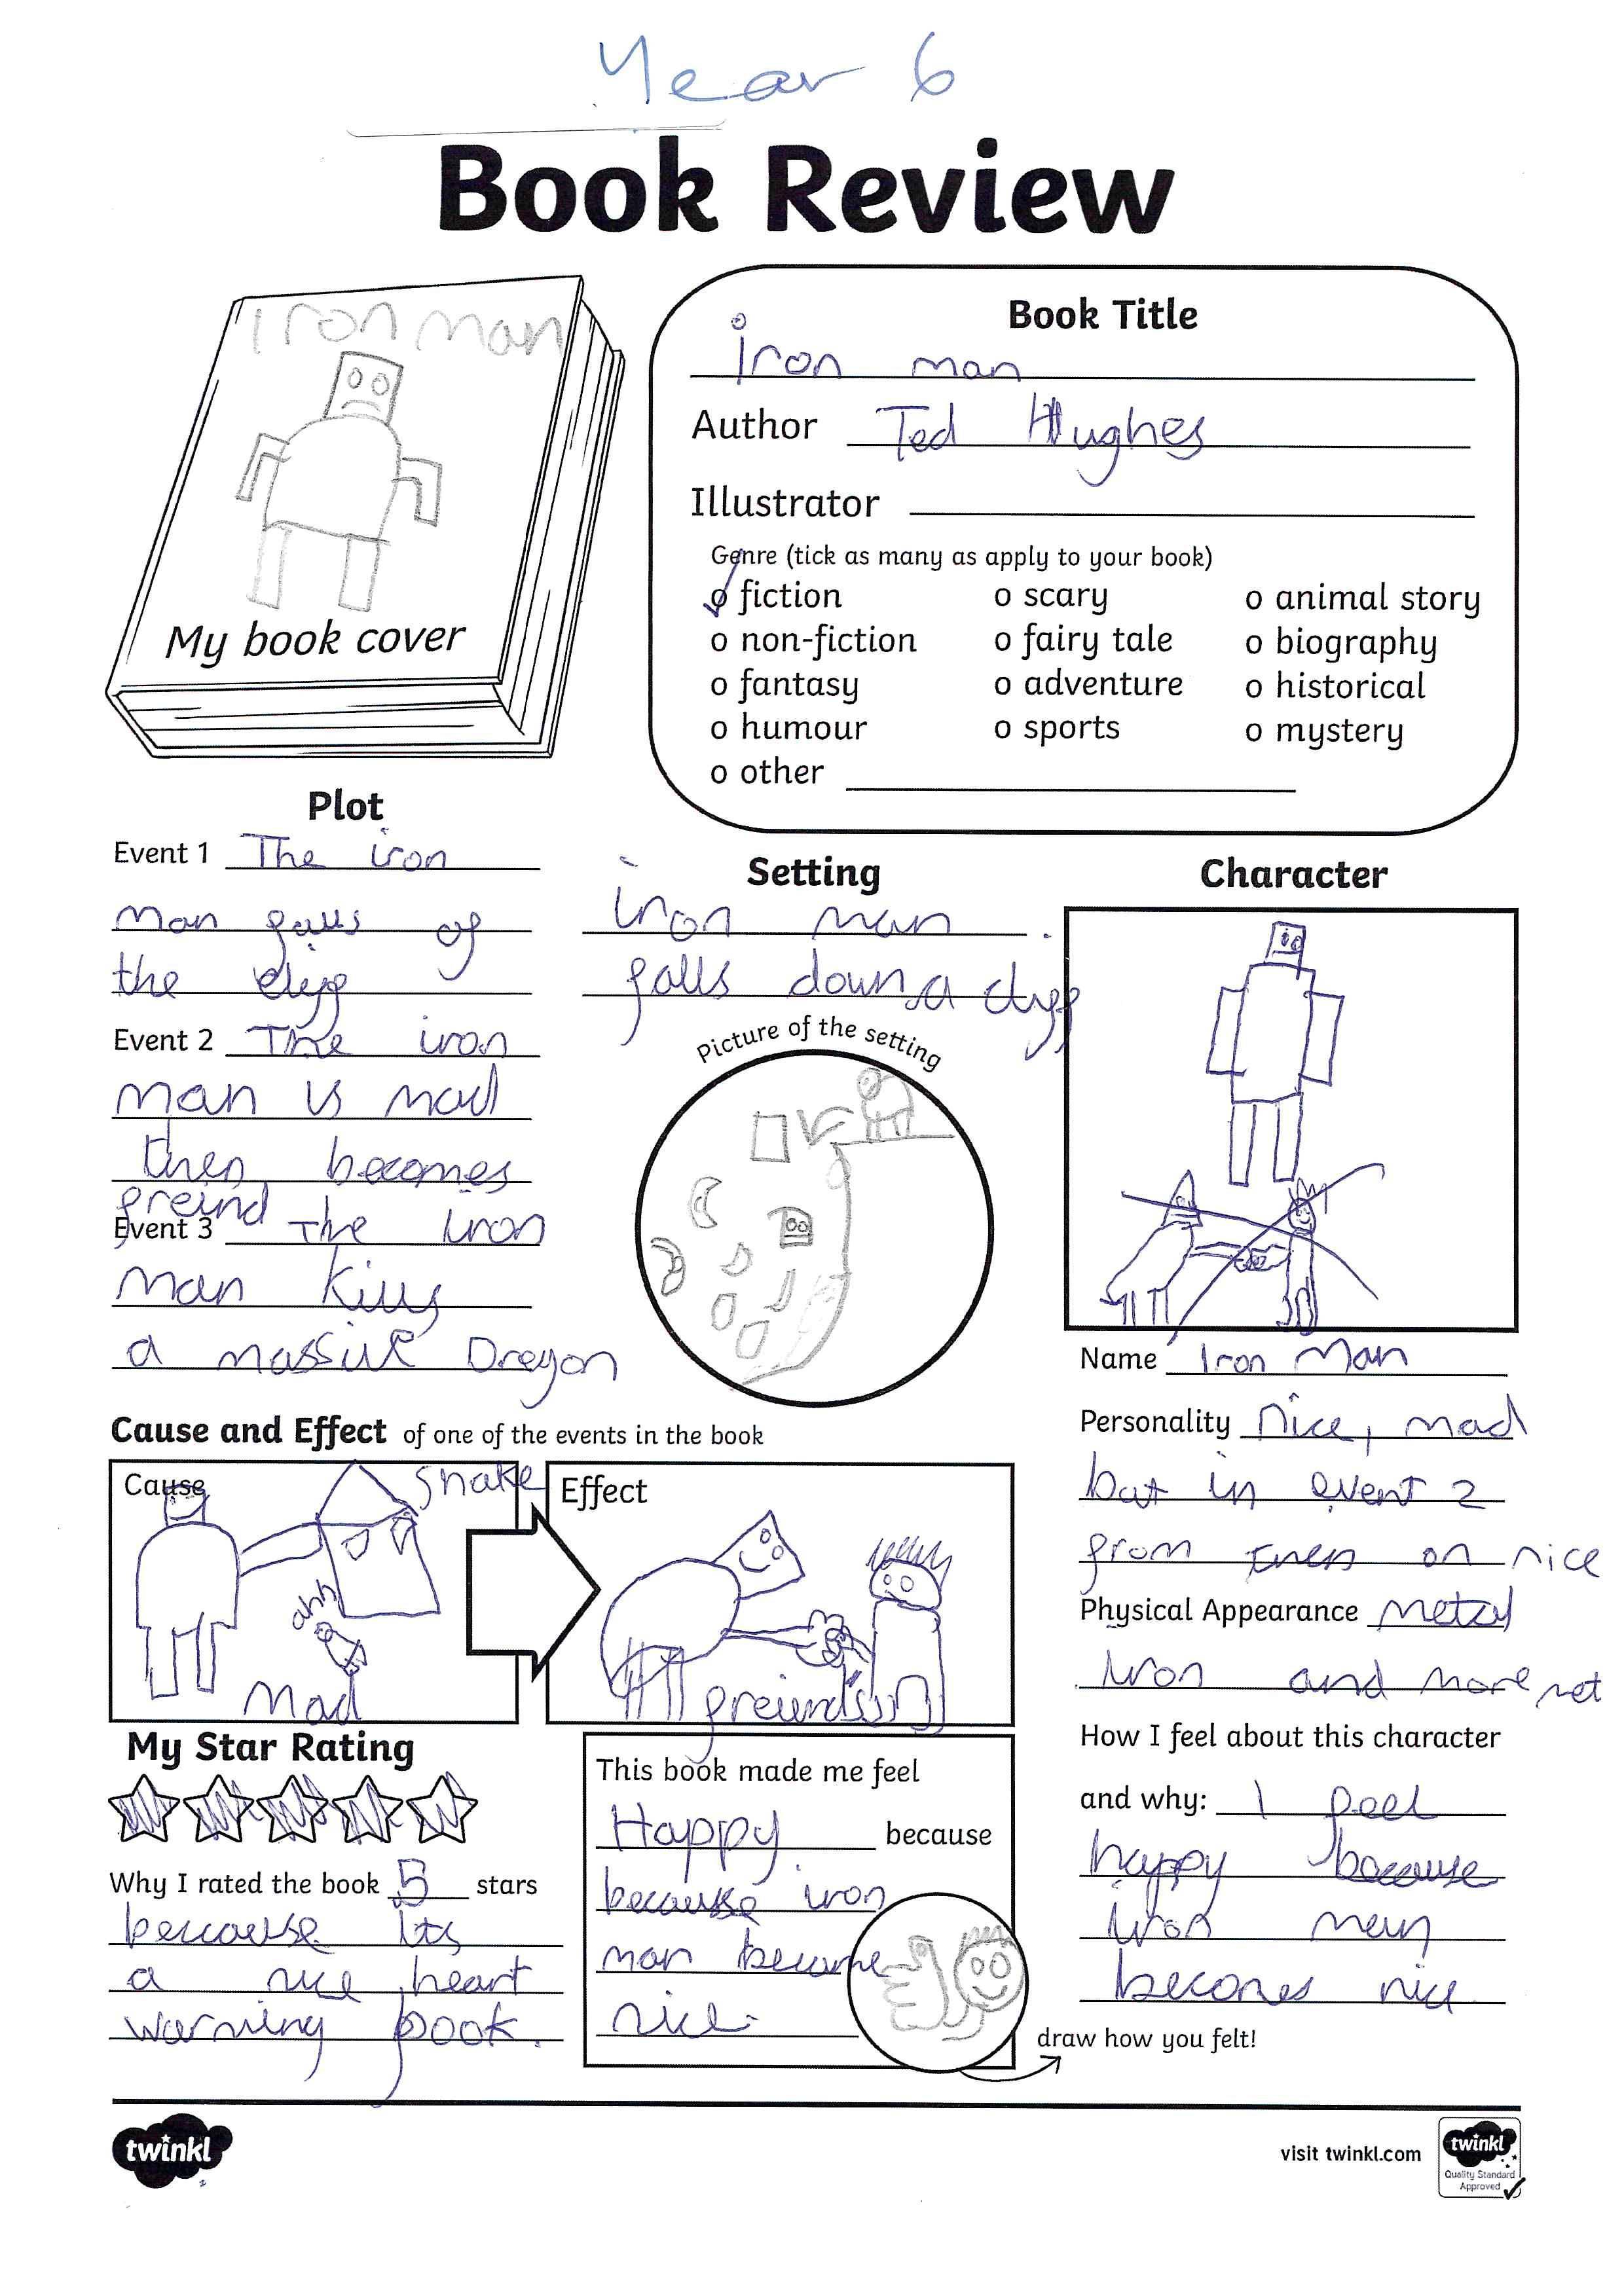 Year 6
Book Review
Iron man
My book cover
Book Title
iron man
Author Ted Hughes
Illustrator
Genre (tick as many as apply to your book)
o fiction
o scary
o animal story
o non-fiction
o fairy tale
o biography
o fantasy
o adventure
o historical
o humour
o sports
o mystery
o other
Plot
Event 1 The iron
man falls of
the cliff
Event 2 The iron
man is mad
then becomes
freind
Event 3 The iron
man kills
a massive Dragon
Setting
iron man
falls down a cliff
Picture of the setting
Character
Name Iron Man
Personality nice, mad
but in event 2
from then on nice
Physical Appearance Metal
iron and more met
How I feel about this character
and why: I feel
happy because
iron man
becomes nice
Cause and Effect of one of the events in the book
Cause
snake
ahh
Mad
Effect
freinds
My Star Rating
Why I rated the book 5 stars
because its
a nice heart
warming book.
This book made me feel
Happy because
because iron
man became
nice.
draw how you felt!
twinkl
visit twinkl.com
twinkl
Quality Standard
Approved